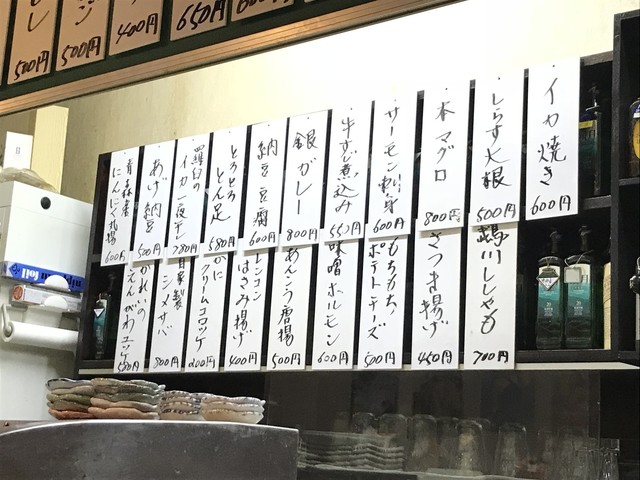 イカ焼き
600円
しらす大根
500円
本マグロ
800円
サーモン刺身
600円
牛すじ煮込み
550円
銀ガレー
800円
納豆豆腐
600円
とろとろとん足
580円
羅臼の
イカ一夜干し
780円
あげ納豆
500円
青森産
にんにく丸揚
600円
鵡川ししゃも
700円
さつま揚げ
450円
もちもち
ポテトチーズ
500円
味噌ホルモン
600円
あんこう唐揚
500円
レンコン
はさみ揚げ
400円
かに
クリームコロッケ
200円
自家製
シメサバ
800円
かれいの
えんがわユッケ
580円
650円
400円
500円
500円